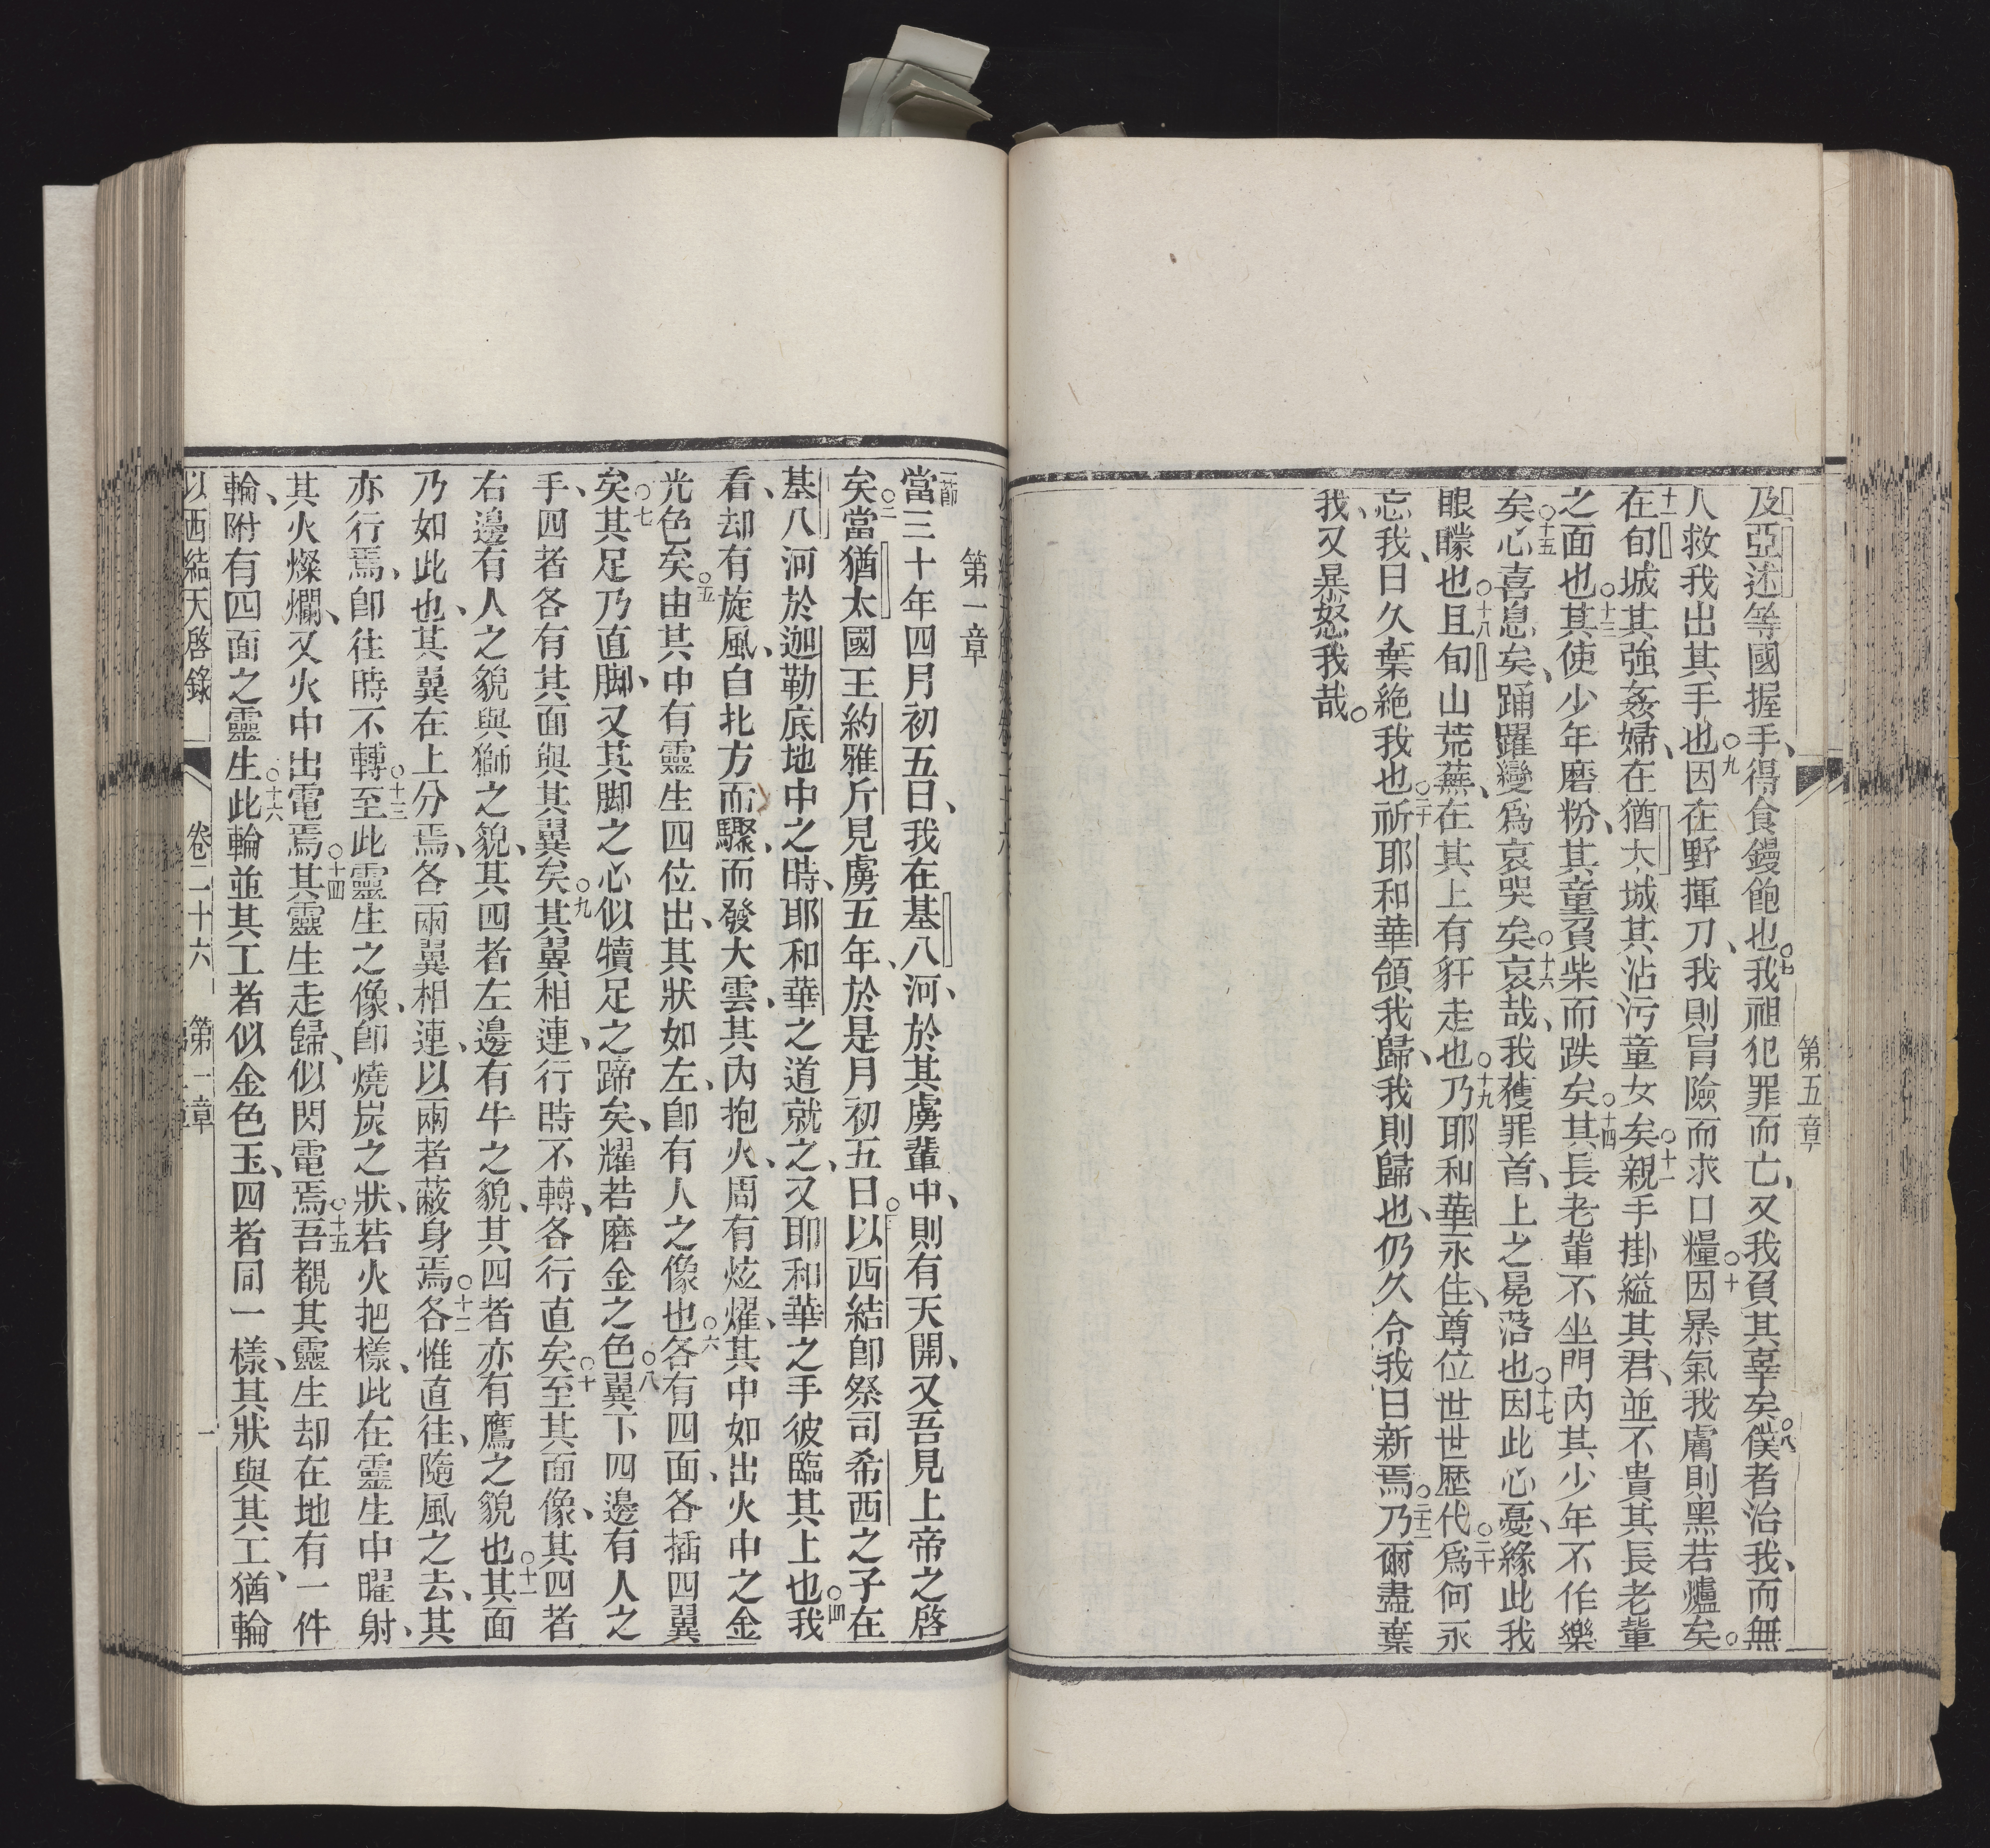 第五章
及亞述等國握手、得食饅飽也。○七我祖犯罪而亡、又我負其辜矣。○八僕者治我、而無
人救我出其手也。○九因在野揮刀、我則冒險而求口糧。○十因暴氣我膚則黑若爐矣。
十一在旬城其強姦婦、在猶太城其沾污童女矣。○十二親手掛縊其君、並不貴其長老輩
之面也。○十三其使少年磨粉、其童負柴而跌矣。○十四其長老輩不坐門內其少年不作樂
矣。○十五心喜息矣、踊躍變為哀哭矣。○十六哀哉、我獲罪首、上之冕落也。○十七因此心憂、緣此我
眼矇也。○十八且旬山荒蕪、在其上有豻走也。○十九乃耶和華永住、尊位世世歷代。○二十為何永
忘我、日久棄絕我也。○二十一祈耶和華領我歸、我則歸也、仍久令我日新焉。○二十二乃爾盡棄
我、又暴怒我哉。
第一章
一節當三十年四月初五日、我在基八河、於其虜輩中、則有天開、又吾見上帝之啓
矣。○二當猶太國王約雅斤見虜五年、於是月初五日。○三以西結即祭司希西之子在
基八河於迦勒底地中之時、耶和華之道就之、又耶和華之手彼臨其上也。○四我
看、却有旋風、自北方而驟、而發大雲、其內抱火、周有炫燿、其中如出火中之金
光色矣。○五由其中有靈生四位出、其狀如左、即有人之像也。○六各有四面、各插四翼
矣。○七其足乃直脚、又其脚之心似犢足之蹄矣、耀若磨金之色。○八翼下四邊有人之
手、四者各有其面與其翼矣。○九其翼相連、行時不轉、各行直矣。○十至其面像、其四者
右邊有人之貌與獅之貌、其四者左邊有牛之貌、其四者亦有鷹之貌也。○十一其面
乃如此也、其翼在上分焉、各兩翼相連、以兩者蔽身焉。○十二各惟直往、隨風之去、其
亦行焉、即往時不轉。○十三至此靈生之像、即燒炭之狀、若火把樣、此在靈生中曜射、
其火燦爛、又火中出電焉。○十四其靈生走歸、似閃電焉。○十五吾觀其靈生却在地有一件
輪、附有四面之靈生。○十六此輪並其工者似金色玉、四者同一樣、其狀與其工、猶輪
以西結天啓錄 卷二十六 第一章 一